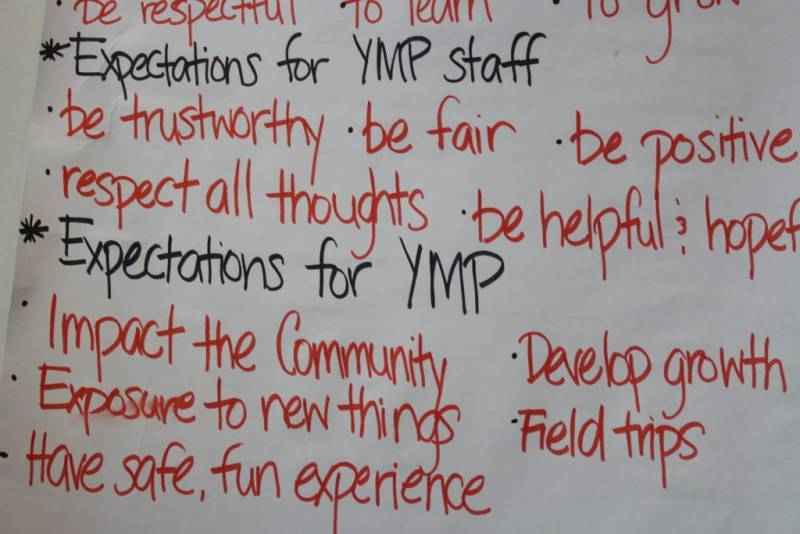 · be respectful · to learn · to grow
* Expectations for YMP staff
· be trustworthy · be fair · be positive
· respect all thoughts · be helpful & hopef
* Expectations for YMP
· Impact the Community · Develop growth
· Exposure to new things · Field trips
· Have safe, fun experience